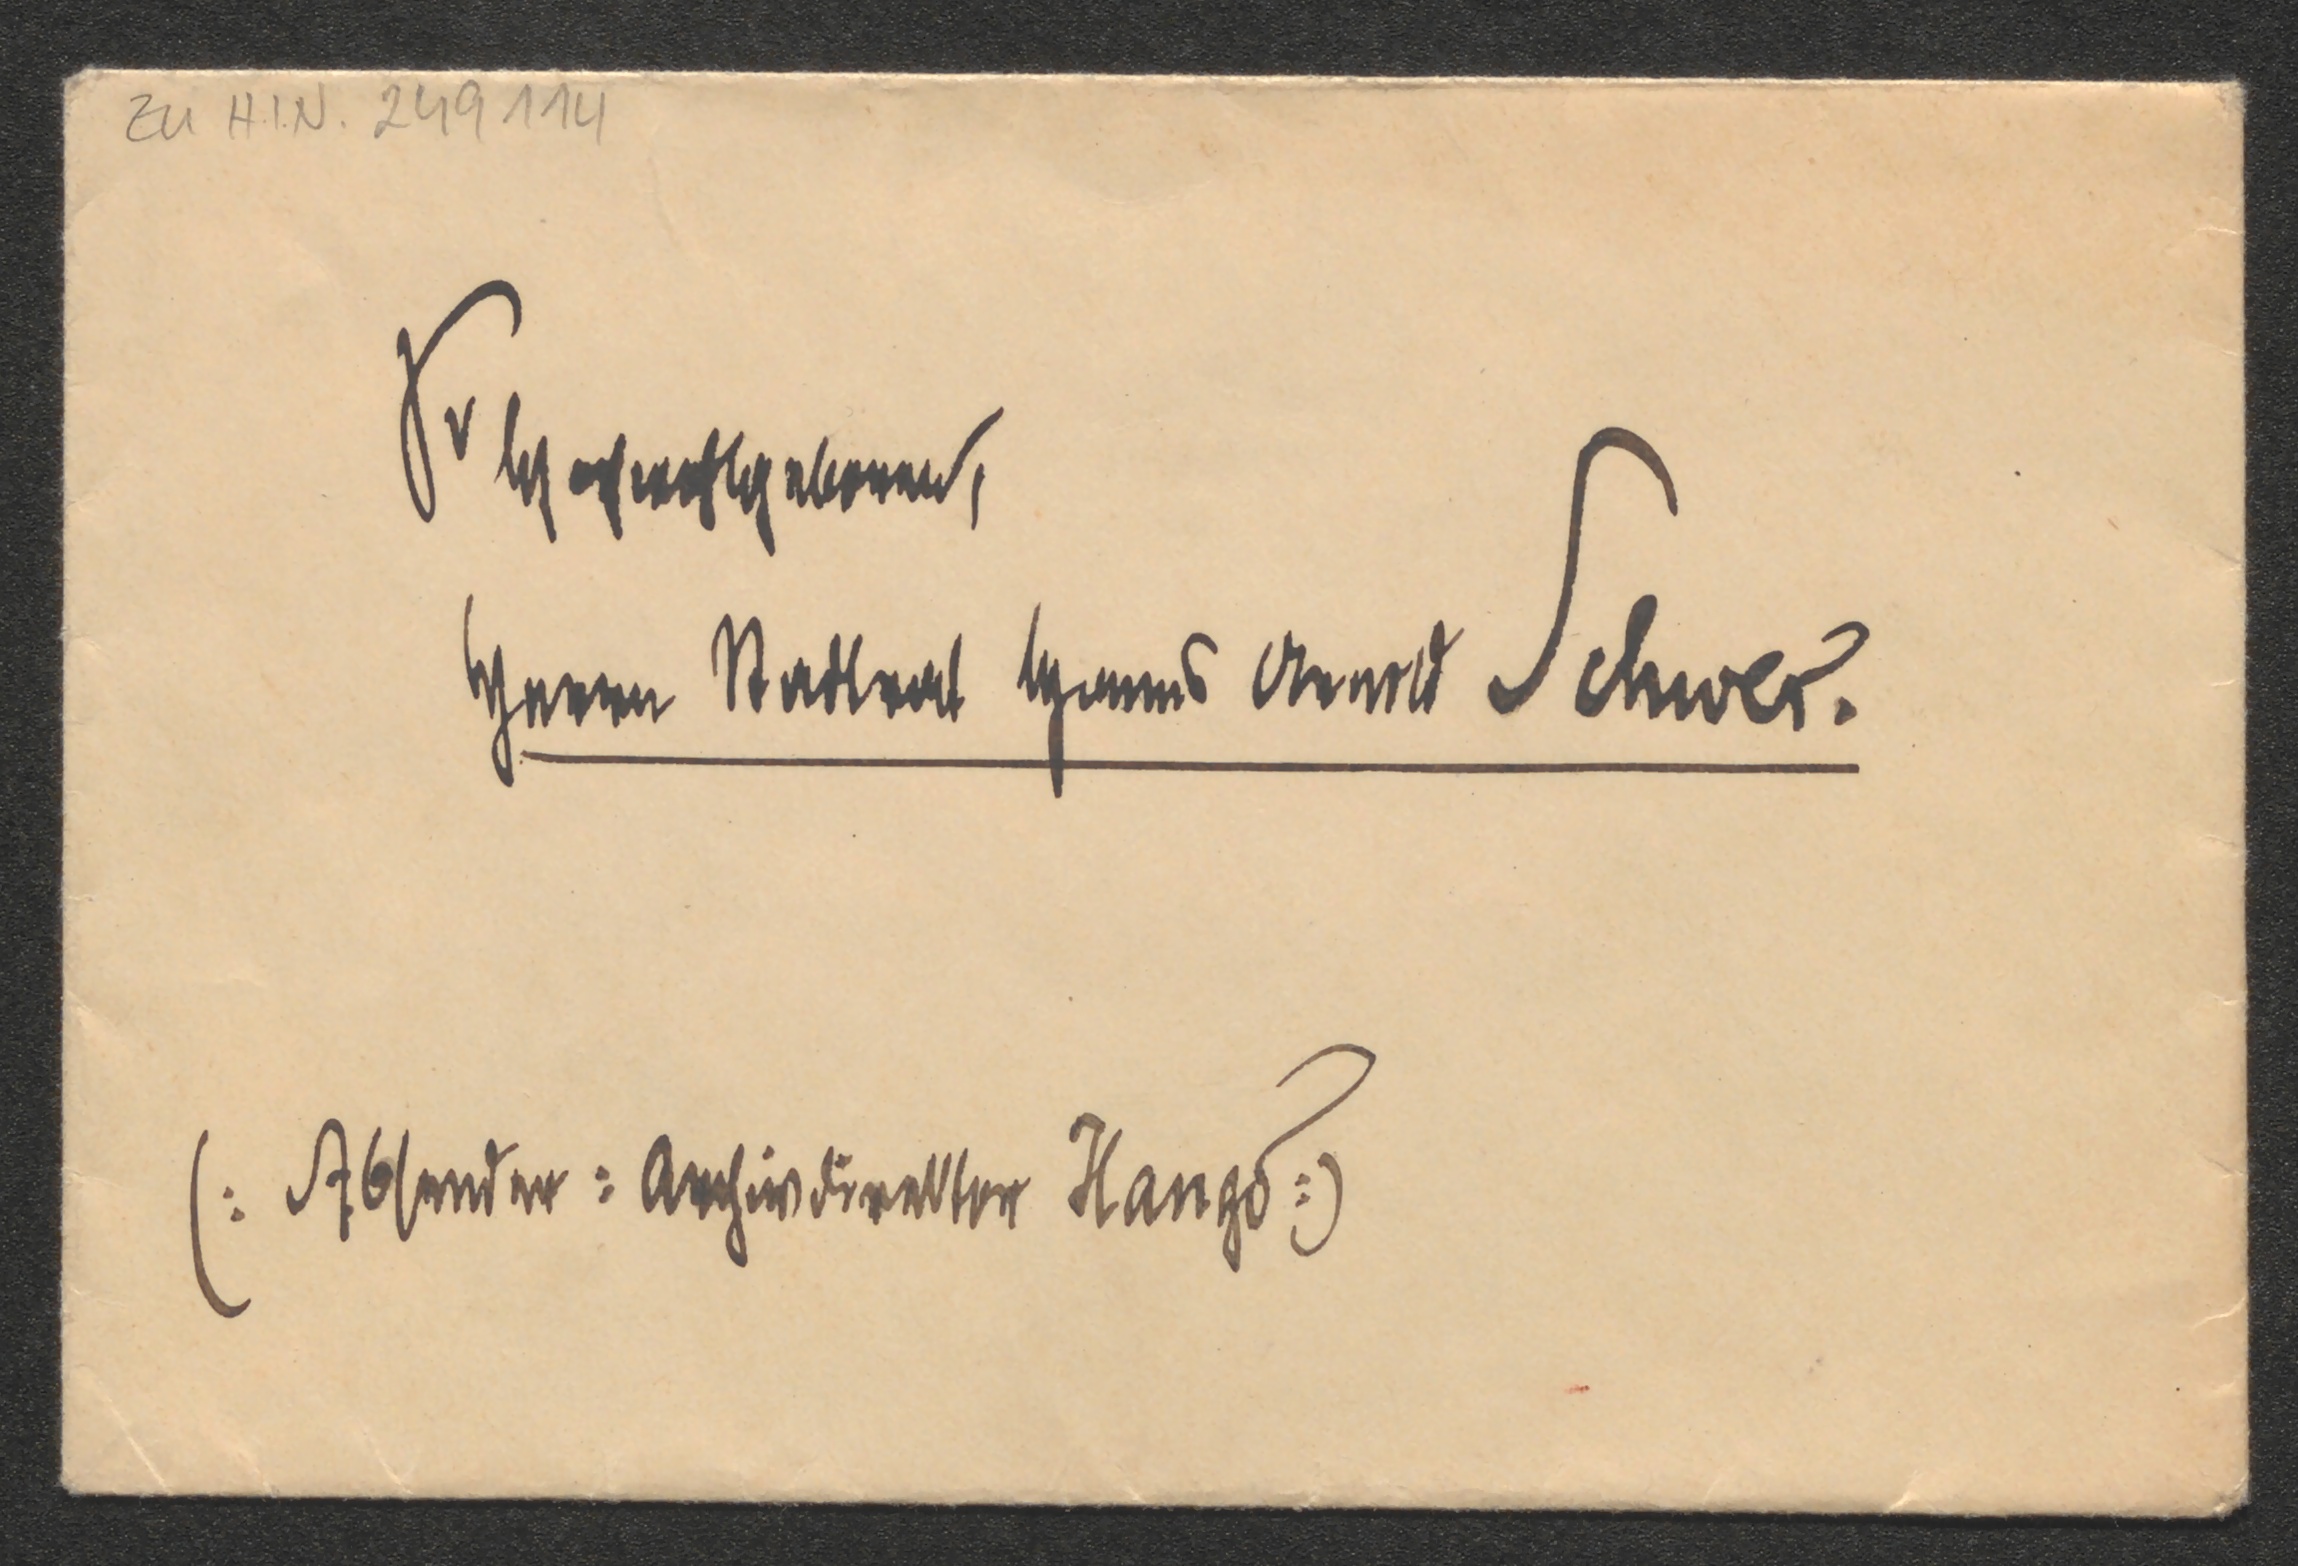 Zu H.I.N. 249114
Sr Hochwohlgeboren,
Herrn Stadtrat Hanns Arnold Schwer.
(: Absender: Archivdirektor Hango :)